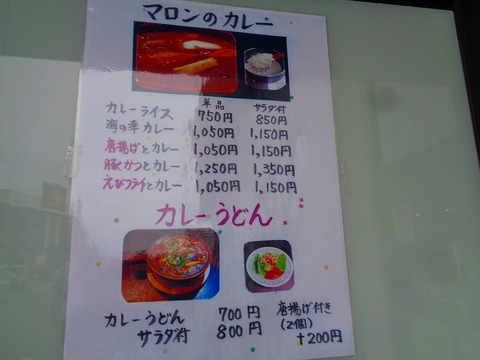 マロンのカレー
単品 サラダ付
カレーライス 750円 850円
海の幸カレー 1,050円 1,150円
唐揚げとカレー 1,050円 1,150円
豚かつとカレー 1,250円 1,350円
えびフライとカレー 1,050円 1,150円
カレーうどん
カレーうどん 700円
サラダ付 800円
唐揚げ付き
(2個)
+200円